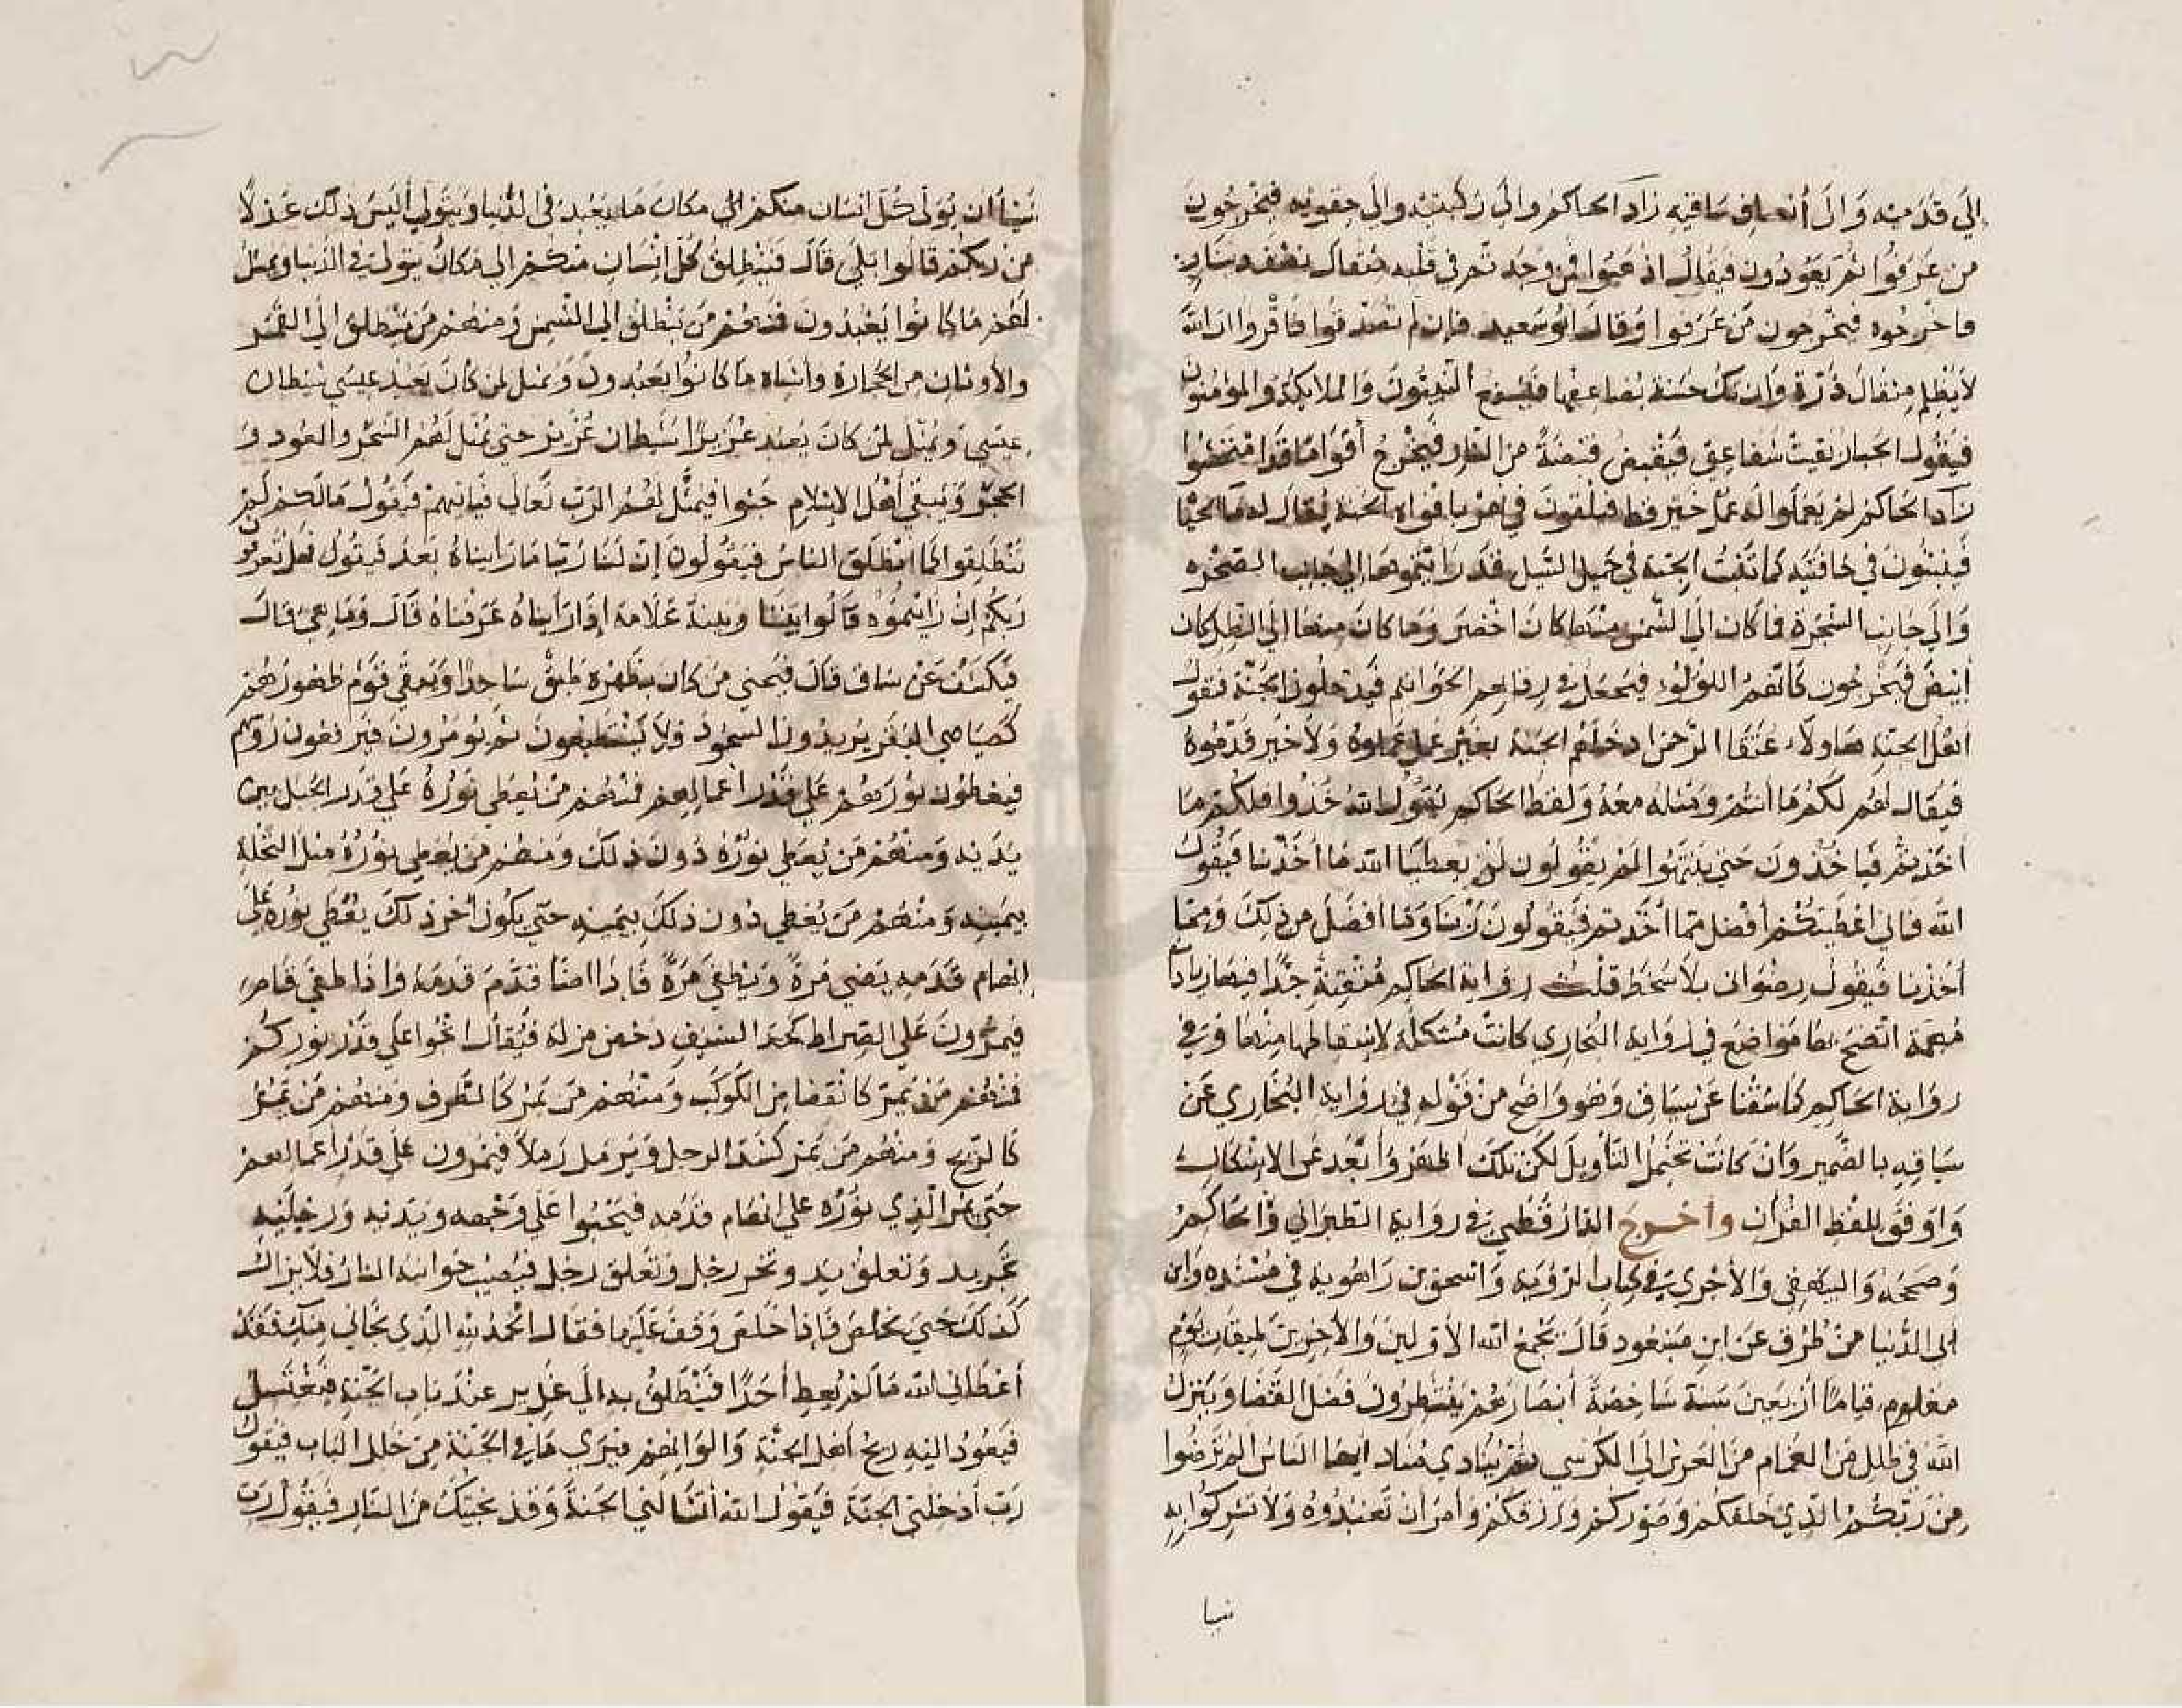 إلى قدميه وإلى أنصاف ساقيه زاد الحاكم وإلى ركبتيه وإلى حقويه فيخرجون
من عرفوا ثم يعودون فيقال اذهبوا فمن وجدتم في قلبه مثقال نصف دينار
فاخرجوه فيخرجون من عرفوا وقال أبو سعيد فإن لم تصدقوا فاقروا ان الله
لا يظلم مثقال ذرة وإن تك حسنة يضاعفها فيشفع النبيون والملايكة والمؤمنون
فيقول الجبار بقيت شفاعتي فيقبض قبضة من النار فيخرج أقواما قد امتحشوا
زاد الحاكم لم يعملوا له عمل خير قط فيلقون في نهر بافواه الجنة يقال له ماء الحيا
فينبتون في حافتيه كما تنبت الحبة في حميل السيل قد رأيتموها إلى جانب الصخره
وإلى جانب الشجرة فما كان إلى الشمس منها كان أخضر وما كان منها إلى الظل كان
أبيض فيخرجون كأنهم اللؤلؤ فيجعل في رقابهم الخواتيم فيدخلون الجنة فيقول
اهل الجنة هاولاء عتقا الرحمن ادخلهم الجنة بغير عمل عملوه ولا خير قدموه
فيقال لهم لكم ما أنتم ومثله معه ولفظ الحاكم يقول الله خذوا فلكم ما
أخذتم فياخذون حتى ينتهوا ثم يقولون لن يعطينا الله ما أخذنا فيقول
الله فاني أعطيتكم أفضل مما أخذتم فيقولون ربنا وما أفضل من ذلك ومما
أخذنا فيقول رضواني بلا سخط قلت رواية الحاكم متقنة جدا فيها زيادات
مهمة اتضح بها مواضع في رواية البخاري كانت مشكلة لاسقاطها منها وفي
رواية الحاكم كما سقنا عن ساق وهو واضح من قوله في رواية البخاري عن
ساقه بالضمير وان كانت تحتمل التأويل لكن تلك أظهر وأبعد عن الاشكال
واوفق للفظ القرآن وأخرج الدارقطني في رواية الطبراني والحاكم
وصححه والبيهقي والأجري في كتاب الرؤية واسحق بن راهوية في مسنده وابن
أبي الدنيا من طرق عن ابن مسعود قال يجمع الله الأولين والأخرين لميقات يوم
معلوم قياما أربعين سنة شاخصة أبصارهم ينتظرون فصل القضا وينزل
الله في ظلل من الغمام من العرش إلى الكرسي ثم ينادي مناد ايها الناس الم ترضوا
من ربكم الذي خلقكم وصوركم ورزقكم وأمر أن تعبدوه ولا تشركوا به
شيا
شيا أن يولي كل انسان منكم إلى مكان ما يعبد في الدنيا ويتولي أليس ذلك عدلا
من ربكم قالوا بلى قال فينطلق كل إنسان منكم إلى مكان يتولى في الدنيا ويمثل
لهم ما كانوا يعبدون فمنهم من ينطلق إلى الشمس ومنهم من ينطلق إلى القمر
والأوثان من الحجارة وأشباه ما كانوا يعبدون ويمثل لمن كان يعبد عيسى شيطان
عيسى ويمثل لمن كان يعبد عزيرا شيطان عزير حتى يمثل لهم الشجر والعود و
الحجر ويبقى أهل الإسلام جثوا فيمثل لهم الرب تعالى فيأتيهم فيقول مالكم لم
تنطلقوا كما انطلق الناس فيقولون إن لنا ربا ما رايناه بعد فيقول فهل تعرفون
ربكم إن رأيتموه قالوا بيننا وبينه علامة إذا رأيناه عرفناه قال وما هي قال
فيكشف عن ساق قال فيحني من كان بظهره طبق ساجدا ويبقى قوم ظهورهم
كصياصي البقر يريدون السجود فلا يستطيعون ثم يؤمرون فيرفعون رؤسهم
فيعطون نورهم على قدر أعمالهم فمنهم من يعطي نوره على قدر الجبل بين
يديه ومنهم من يعطي نوره دون ذلك ومنهم من يعطي نوره مثل النخلة
بيمينه ومنهم من يعطي دون ذلك بيمينه حتى يكون أخر ذلك يعطي نوره على
ابهام قدمه يضي مرة ويطفي مرة فإذا اضا قدم قدمه واذا طفي قام
فيمرون على الصراط كحد السيف دحض مزلة فيقال انجوا على قدر نوركم
فمنهم من يمر كانقضاض الكوكب ومنهم من يمر كالطرف ومنهم من يمر
كالريح ومنهم من يمر كشد الرجل ويرمل رملا فيمرون على قدر أعمالهم
حتى يمر الذي نوره على ابهام قدمه فيحبوا على وجهه ويديه ورجليه
تجر يد وتعلق يد وتجر رجل وتعلق رجل فيصيب جوانبه النار فلا يزال
كذلك حتى يخلص فإذا خلص وقف عليها فقال الحمد لله الذي نجاني منك فقد
أعطاني الله ما لم يعط أحدا فينطلق به إلى غدير عند باب الجنة فيغتسل
فيعود اليه ريح أهل الجنة والوانهم فيرى ما في الجنة من خلل الباب فيقول
رب أدخلني الجنة فيقول الله أتسالني الجنة وقد نجيتك من النار فيقول رب